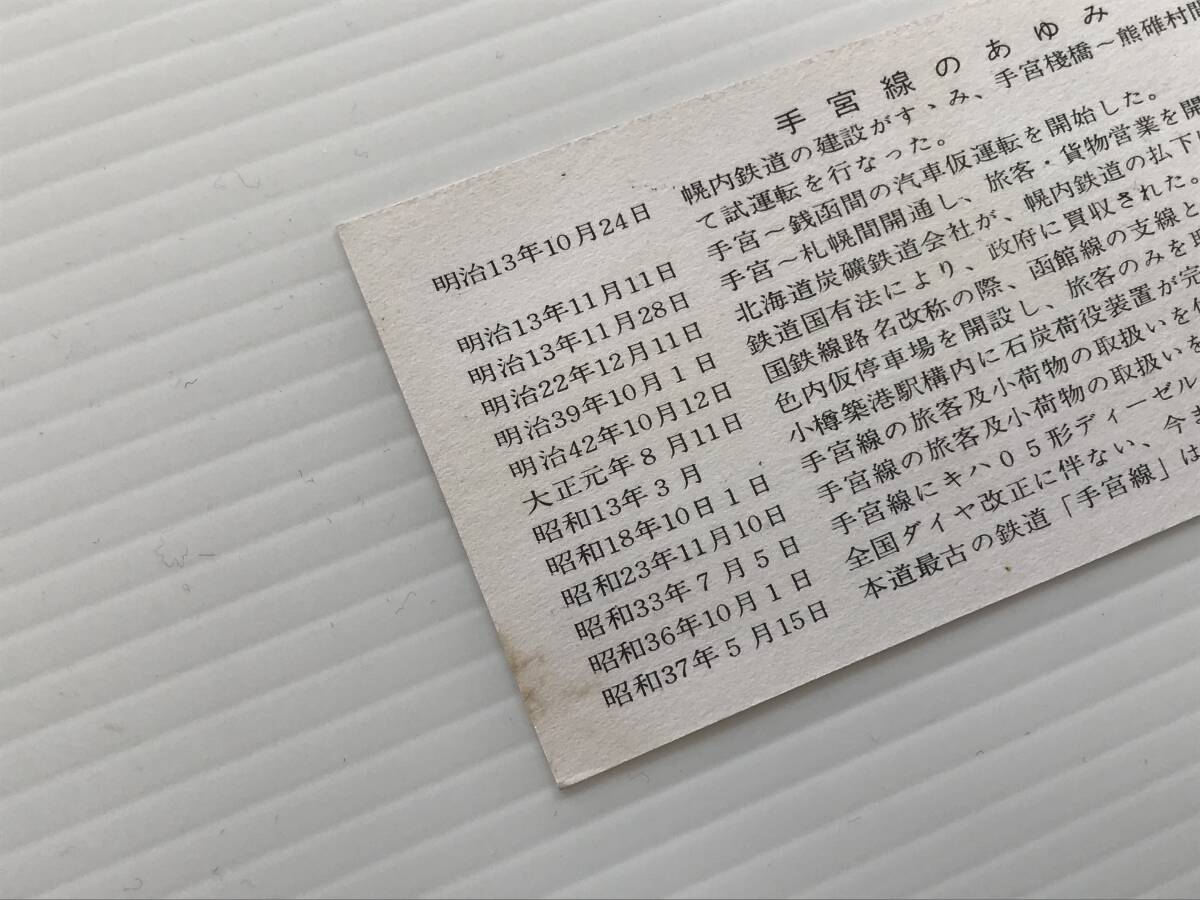 手宮線のあゆみ
明治13年10月24日 幌内鉄道の建設がすゝみ、手宮棧橋～熊碓村間
て試運転を行なった。
明治13年11月11日 手宮～銭函間の汽車仮運転を開始した。
明治13年11月28日 手宮～札幌間開通し、旅客・貨物営業を開
明治22年12月11日 北海道炭礦鉄道会社が、幌内鉄道の払下
明治39年10月1日 鉄道国有法により、政府に買収された。
明治42年10月12日 国鉄線路名改称の際、函館線の支線と
大正元年8月11日 色内仮停車場を開設し、旅客のみを取
昭和13年3月 小樽築港駅構内に石炭荷役装置が完
昭和18年10日1日 手宮線の旅客及小荷物の取扱いを
昭和23年11月10日 手宮線の旅客及小荷物の取扱いを
昭和33年7月5日 手宮線にキハ05形ディーゼル
昭和36年10月1日 全国ダイヤ改正に伴ない、今ま
昭和37年5月15日 本道最古の鉄道「手宮線」は